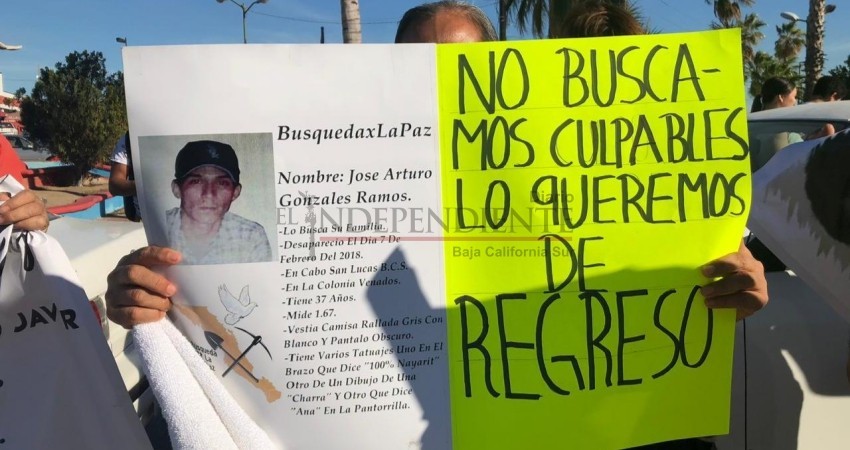 BusquedaxLaPaz
Nombre: Jose Arturo
Gonzales Ramos.
-Lo Busca Su Familia.
-Desaparecio El Dia 7 De
Febrero Del 2018.
-En Cabo San Lucas B.C.S.
-En La Colonia Venados.
-Tiene 37 Años.
-Mide 1.67.
-Vestia Camisa Rallada Gris Con
Blanco Y Pantalo Obscuro.
-Tiene Varios Tatuajes Uno En El
Brazo Que Dice "100% Nayarit"
Otro De Un Dibujo De Una
"Charra" Y Otro Que Dice
"Ana" En La Pantorrilla.
Busqueda
x La
Paz
NO BUSCA-
MOS CULPABLES
LO QUEREMOS
DE
REGRESO
Diario
EL INDEPENDIENTE
Baja California Sur
JAVR